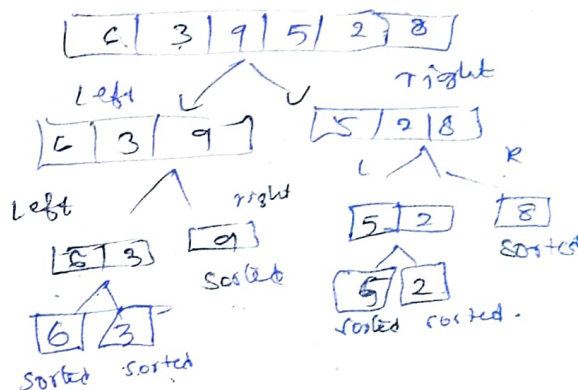 6 3 9 5 2 8
Left right
6 3 9 5 2 8
Left right L R
6 3 9 5 2 8
sorted sorted
6 3 5 2
sorted sorted sorted sorted.